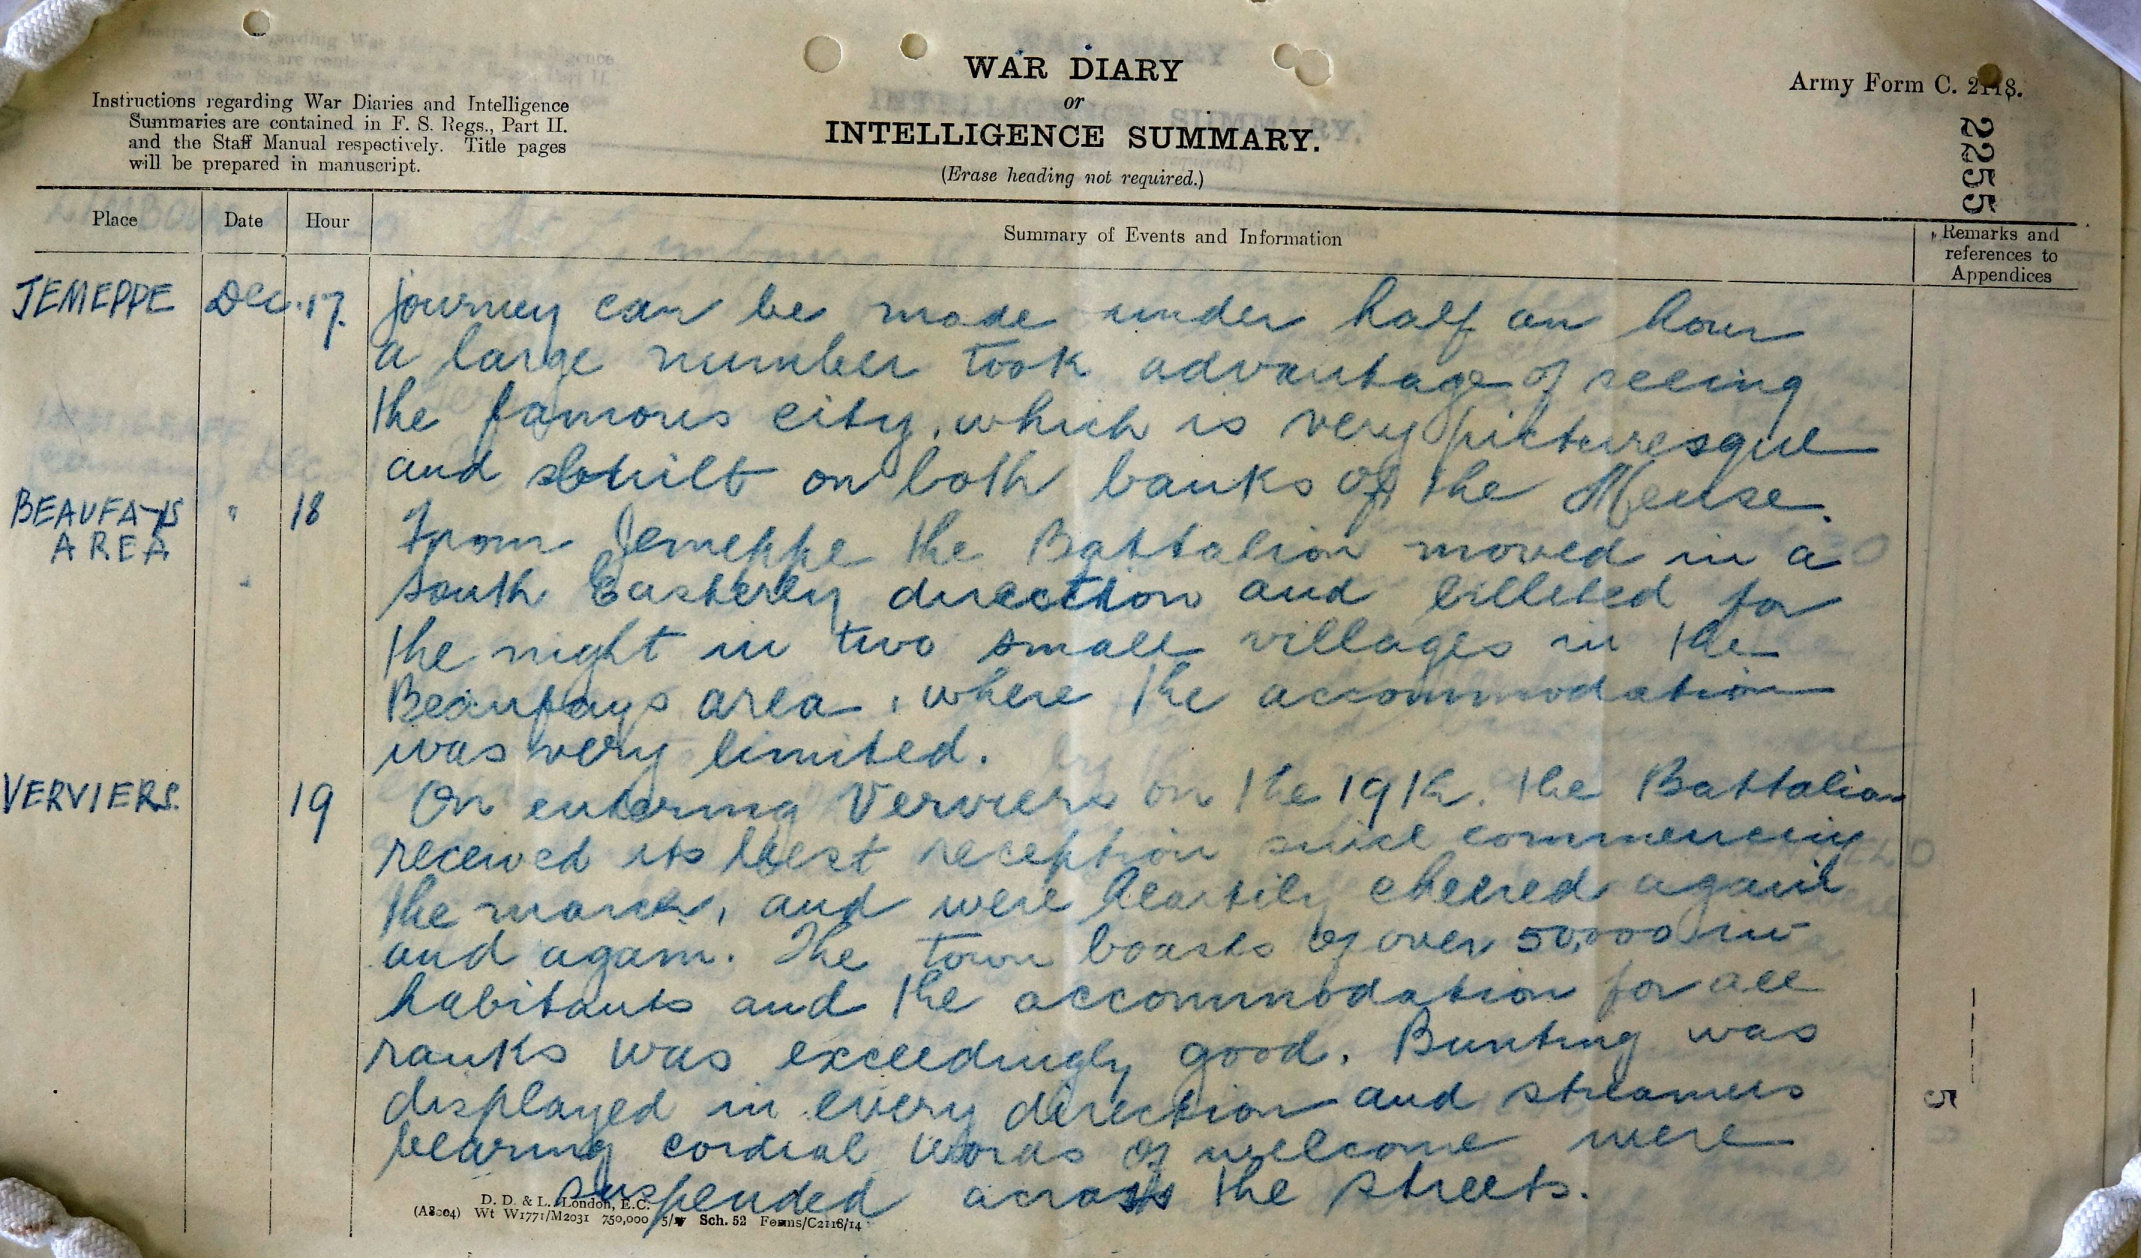 WAR DIARY
or
INTELLIGENCE SUMMARY.
(Erase heading not required.)
Army Form C. 2118.
Instructions regarding War Diaries and Intelligence
Summaries are contained in F. S. Regs., Part II.
and the Staff Manual respectively. Title pages
will be prepared in manuscript.
2255
Place Date Hour Summary of Events and Information Remarks and
references to
Appendices
JEMEPPE Dec. 17. journey can be made under half an hour
a large number took advantage of seeing
the famous city, which is very picturesque
and built on both banks of the Meuse.
BEAUFAYS " 18 From Jemeppe the Battalion moved in a
AREA
South Easterly direction and billeted for
the night in two small villages in the
Beaufays area, where the accommodation
was very limited.
VERVIERS. 19 On entering Verviers on the 19th. the Battalion
received its best reception since commencing
the march, and were heartily cheered again
and again. The town boasts of over 50,000 in
habitants and the accommodation for all
ranks was exceedingly good. Bunting was
displayed in every direction and streamers
bearing cordial words of welcome were
suspended across the streets.
D. D. & L., London, E.C.
(A8004) Wt W1771/M2031 750,000 5/17 Sch. 52 Forms/C2118/14